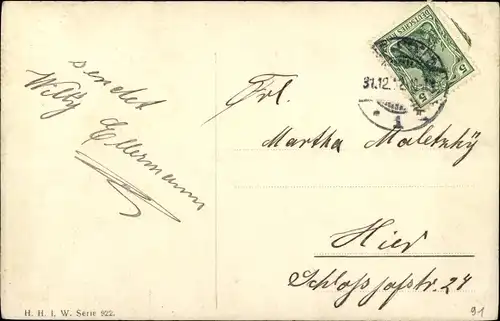 sendet
Willy Ellermann
Frl.
Martha Maletzky
Hier
Schlosshofstr. 24
DEUTSCHES REICH
5
31.12.12
1
H. H. I. W. Serie 922.
91